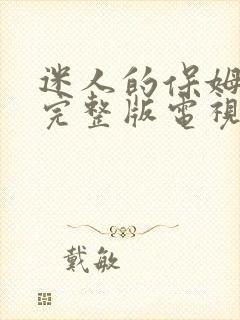 迷人的保姆
完整版電視
戴敏